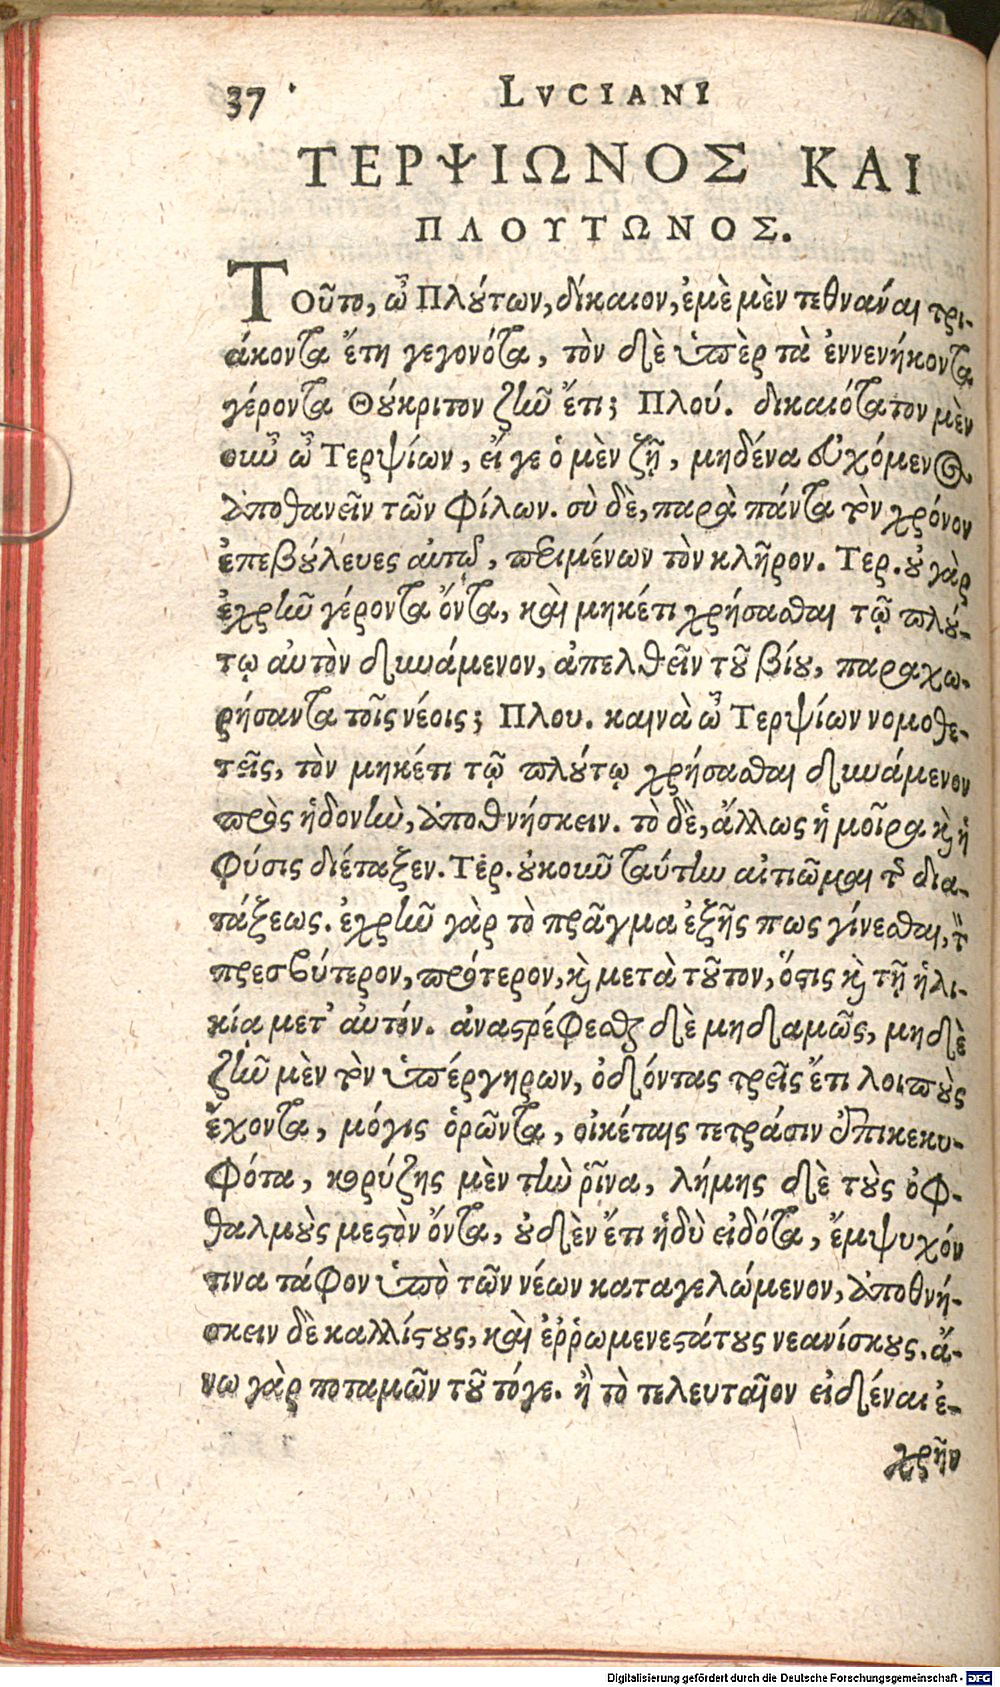 37 LVCIANI
ΤΕΡΨΙΩΝΟΣ ΚΑΙ
ΠΛΟΥΤΩΝΟΣ.
Τοῦτο, ὦ Πλούτων, δίκαιον, ἐμὲ μὲν τεθνάναι τρι-
άκοντα ἔτη γεγονότα, τὸν δὲ ὑπὲρ τὰ ἐννενήκοντα
γέροντα Θούκριτον ζῆν ἔτι; Πλού. δικαιότατον μὲν
οὖν ὦ Τερψίων, εἴ γε ὁ μὲν ζῇ, μηδένα εὐχόμενος
ἀποθανεῖν τῶν φίλων. σὺ δὲ, παρὰ πάντα τὸν χρόνον
ἐπεβούλευες αὐτῷ, περιμένων τὸν κλῆρον. Τερ. οὐ γὰρ
ἐχρῆν γέροντα ὄντα, καὶ μηκέτι χρήσασθαι τῷ πλού-
τῳ αὐτὸν δυνάμενον, ἀπελθεῖν τοῦ βίου, παραχω-
ρήσαντα τοῖς νέοις; Πλου. καινὰ ὦ Τερψίων νομοθε-
τεῖς, τὸν μηκέτι τῷ πλούτῳ χρήσασθαι δυνάμενον
πρὸς ἡδονὴν, ἀποθνήσκειν. τὸ δὲ, ἄλλως ἡ μοῖρα καὶ ἡ
φύσις διέταξεν. Τέρ. οὐκοῦν ταύτην αἰτιῶμαι τῆς δια-
τάξεως. ἐχρῆν γὰρ τὸ πρᾶγμα ἑξῆς πως γίνεσθαι, τὸν
πρεσβύτερον, πρότερον, καὶ μετὰ τοῦτον, ὅστις καὶ τῇ ἡλι-
κίᾳ μετ' αὐτόν. ἀναστρέφεσθαι δὲ μηδαμῶς, μηδὲ
ζῆν μὲν τὸν ὑπέργηρων, ὀδόντας τρεῖς ἔτι λοιποὺς
ἔχοντα, μόγις ὁρῶντα, οἰκέταις τετράσιν ἐπικεκυ-
φότα, κορύζης μὲν τὴν ῥῖνα, λήμης δὲ τοὺς ὀφ-
θαλμοὺς μεστὸν ὄντα, οὐδὲν ἔτι ἡδὺ εἰδότα, ἔμψυχόν
τινα τάφον ὑπὸ τῶν νέων καταγελώμενον, ἀποθνή-
σκειν δὲ καλλίστους, καὶ ἐῤῥωμενεστάτους νεανίσκους. ἄ-
νω γὰρ ποταμῶν τοῦτό γε. ἢ τὸ τελευταῖον εἰδέναι ἐ-
χρῆν
Digitalisierung gefördert durch die Deutsche Forschungsgemeinschaft - DFG